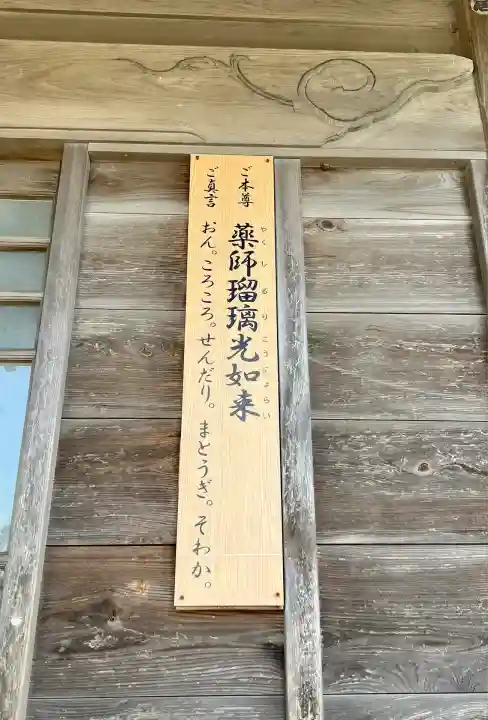 ご本尊 薬師瑠璃光如来
やくしるりこうにょらい
ご真言 おん。ころころ。せんだり。まとうぎ。そわか。